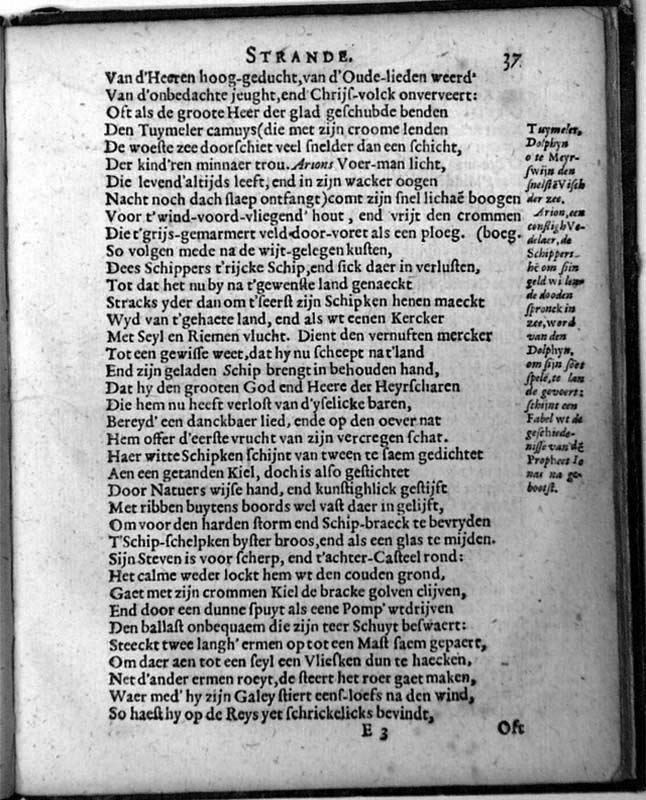 STRANDE. 37
Van d'Heeren hoog-geducht, van d'Oude-lieden weerd'
Van d'onbedachte jeught, end Chrijſ-volck onverveert:
Oft als de groote Heer der glad geſchubde benden
Den Tuymeler camuys (die met zijn croome lenden
De woeſte zee doorſchiet veel ſnelder dan een ſchicht,
Der kind'ren minnaer trou. Arions Voer-man licht,
Die levend' altijds leeft, end in zijn wacker oogen
Nacht noch dach ſlaep ontfangt) comt zijn ſnel lichaē boogen
Voor t'wind-voord-vliegend' hout, end vrijt den crommen
Die t'grijs-gemarmert veld door-voret als een ploeg. (boeg.
So volgen mede na de wijt-gelegen kuſten,
Dees Schippers t'rijcke Schip, end ſick daer in verluſten,
Tot dat het nu by na t'gewenſte land genaeckt
Stracks yder dan om t'ſeerſt zijn Schipken henen maeckt
Wyd van t'gehaete land, end als wt eenen Kercker
Met Seyl en Riemen vlucht. Dient den vernuften mercker
Tot een gewiſſe weet, dat hy nu ſcheept na t'land
End zijn geladen Schip brengt in behouden hand,
Dat hy den grooten God end Heere der Heyrſcharen
Die hem nu heeft verloſt van d'yſelicke baren,
Bereyd' een danckbaer lied, ende op den oever nat
Hem offer d'eerſte vrucht van zijn vercregen ſchat.
Haer witte Schipken ſchijnt van tween te ſaem gedichtet
Aen een getanden Kiel, doch is alſo geſtichtet
Door Natuers wijſe hand, end kunſtighlick geſtijft
Met ribben buytens boords wel vaſt daer in gelijft,
Om voor den harden ſtorm end Schip-braeck te bevryden
T'Schip-ſchelpken byſter broos, end als een glas te mijden.
Sijn Steven is voor ſcherp, end t'achter-Caſteel rond:
Het calme weder lockt hem wt den couden grond,
Gaet met zijn crommen Kiel de bracke golven clijven,
End door een dunne ſpuyt als eene Pomp' wtdrijven
Den ballaſt onbequaem die zijn teer Schuyt beſwaert:
Steeckt twee langh' ermen op tot een Maſt ſaem gepaert,
Om daer aen tot een ſeyl een Vlieſken dun te haecken,
Net d'ander ermen roeyt, de ſteert het roer gaet maken,
Waer med' hy zijn Galey ſtiert eenſ-loefs na den wind,
So haeſt hy op de Reys yet ſchrickelicks bevindt,
E 3 Oft
Tuymeler,
Dolphyn
o te Meyr-
ſwijn den
ſnelſtē Viſch
der zee.
Arion, een
conſtigh Ve-
delaer, de
Schippers
hē om ſijn
geld wilen
de dooden
ſpronck in
zee, word
van den
Dolphyn,
om ſijn ſoet
ſpele, te lan
de gevoert:
ſchijnt een
Fabel wt de
geſchiede-
niſſe van dē
Propheet Io
nas na ge-
bootſt.